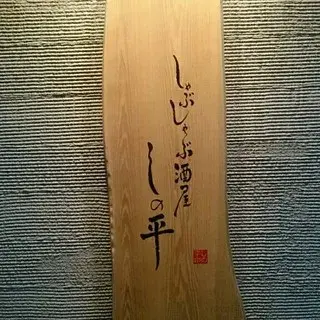 しゃぶしゃぶ酒屋
しの平